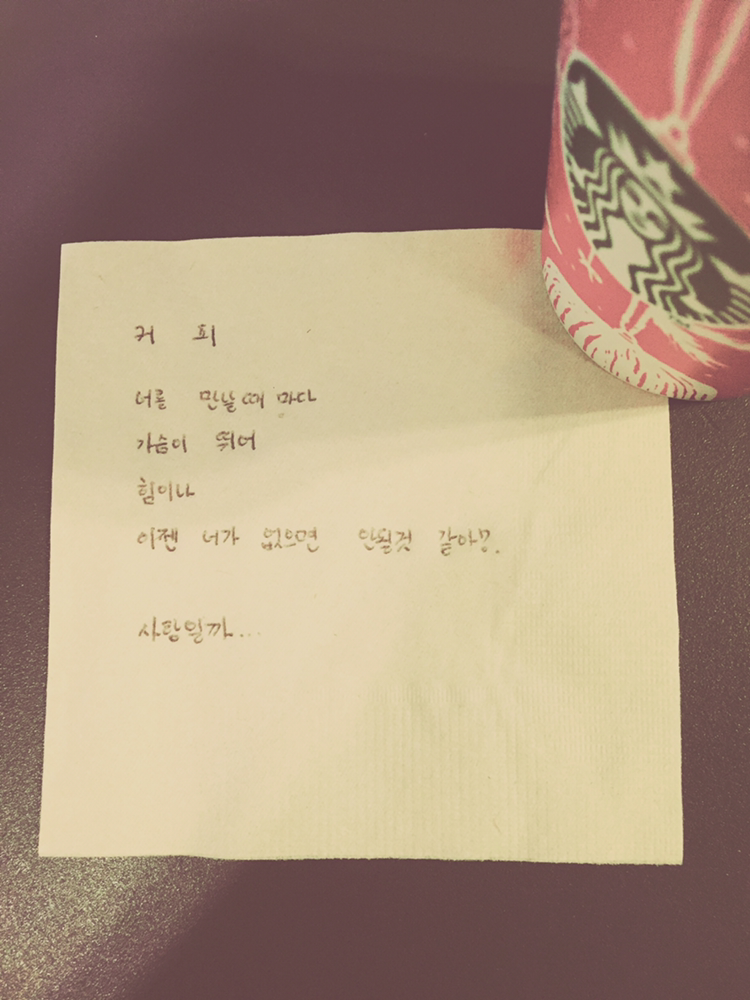 커 피
너를 만날때 마다
가슴이 뛰어
힘이나
이젠 너가 없으면 안될것 같아.
사랑일까...